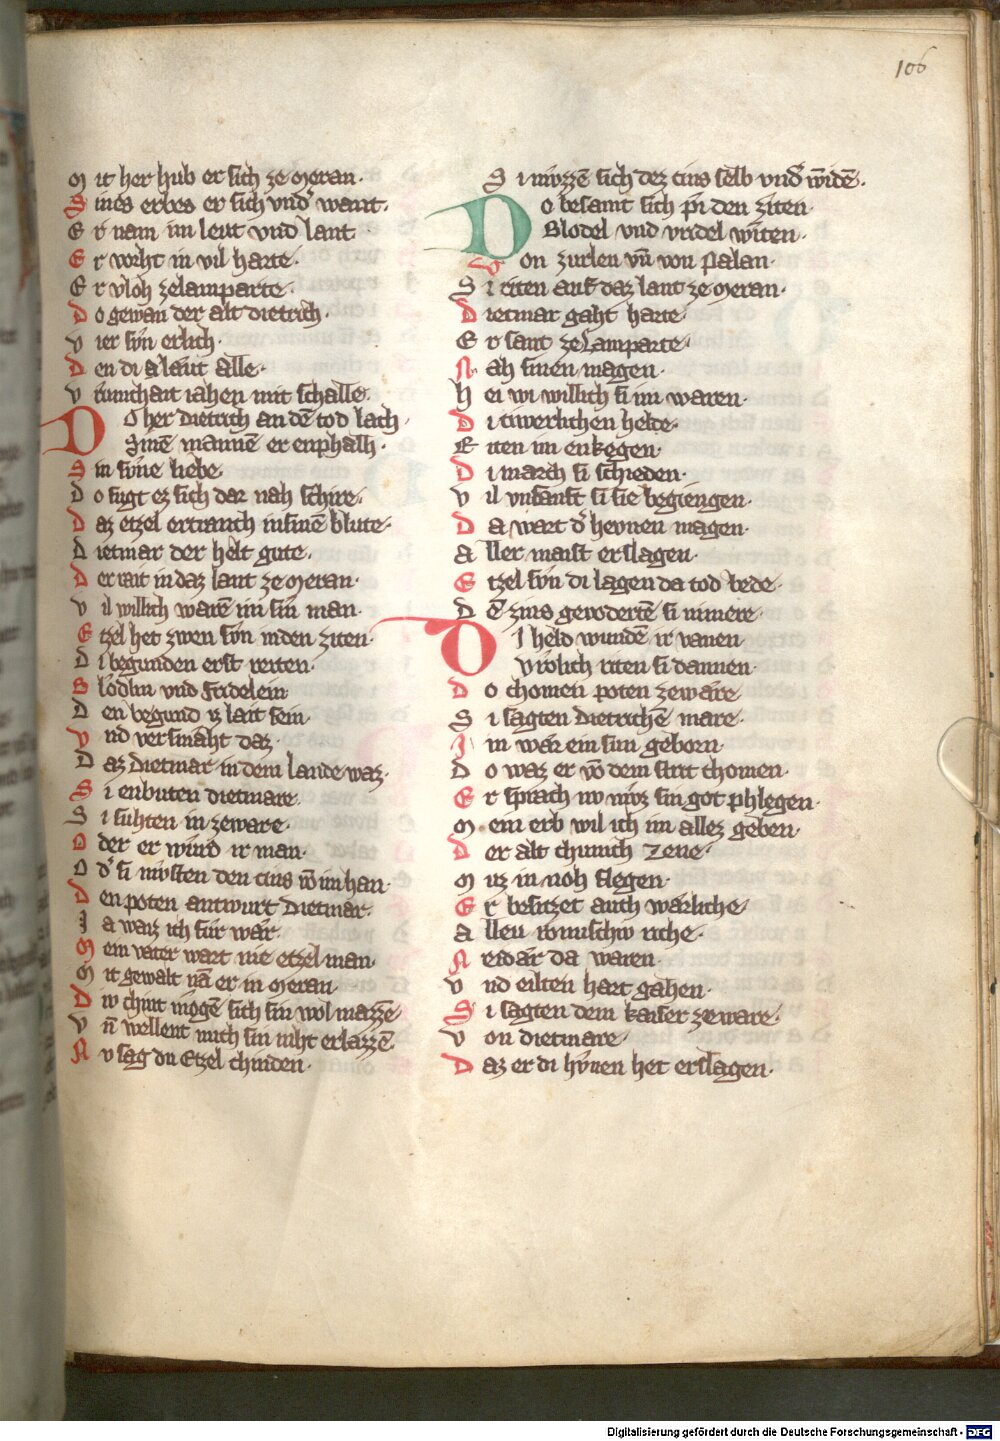 106
Mit her hub er sich ze Meran.
Sines erbes er sich vnd' want.
Er nam im leut vnd lant
Er vorht in vil harte.
Er vloh zelamparte.
Do gewan der alt dietrich.
vier svn erlich.
Den di alaut alle.
Do her Dietrich an dē tod lach.
Sinē mannē er enphalh.
Sin svne liebe.
Do fugt ez sich dar nah schire.
Daz etzel ertranch insinē blute.
Dietmar der helt gute.
Der rait in daz lant ze Meran.
vil willich warē im sin man.
Etzel het zwen svn inden ziten.
Di begunden erst reiten.
Blodlin vnd Fridelein
Den begund iz lait sein
Vnd versmaht daz.
Daz Dietmar in dem lande waz.
Si enbuten dietmare.
Si suhten in zeware.
Oder er wurd ir man.
Od' si mvsten den cins vō im han.
Den poten antwurt Dietmar.
Ja waiz ich fur war.
Mein vater wart nie etzel man.
Mit gewalt nā er in Meran.
Div chint mvgē sich sin wol mazzē
vn̄ wellent mich sin niht erlazzē.
Nv sag du Etzel chinden.
Si mvzzē sich dez cins selb vnd' widē.
Do besamt sich pi den ziten.
Blodel vnd vridel witen.
Von zurlen vn̄ von Palan.
Si riten auf daz lant ze Meran.
Dietmar gaht harte.
Er sant ze Lamparte.
Nah sinen magen.
Hei wi willich si im waren.
Di tiwerlichen helde.
Riten im enkegen.
Di march si schieden.
vil vnsanft si sie begiengen.
Da wart d' hevnen magen.
Aller maist erslagen.
Etzel svn di lagen da tod bede.
Dē zins gevodertē si nimere.
Di held wundē ir vanen
Vrolich riten si dannen.
Do chomen poten zeware.
Si sagten Dietrichē mare.
Im wær ein sun geborn.
Do waz er vō dem strit chomen.
Er sprach nv mvz sin got phlegen.
Mein erb wil ich im allez geben.
Der alt chunich Zene.
Mvz in noh slegen.
Er besitzet auch wærliche
Allev romischiv riche.
Neidær da waren
Vnd eilten hart gahen.
Si sagten dem kaiser zeware.
Von dietmare.
Daz er di hvnen het erslagen.
Digitalisierung gefördert durch die Deutsche Forschungsgemeinschaft - DFG